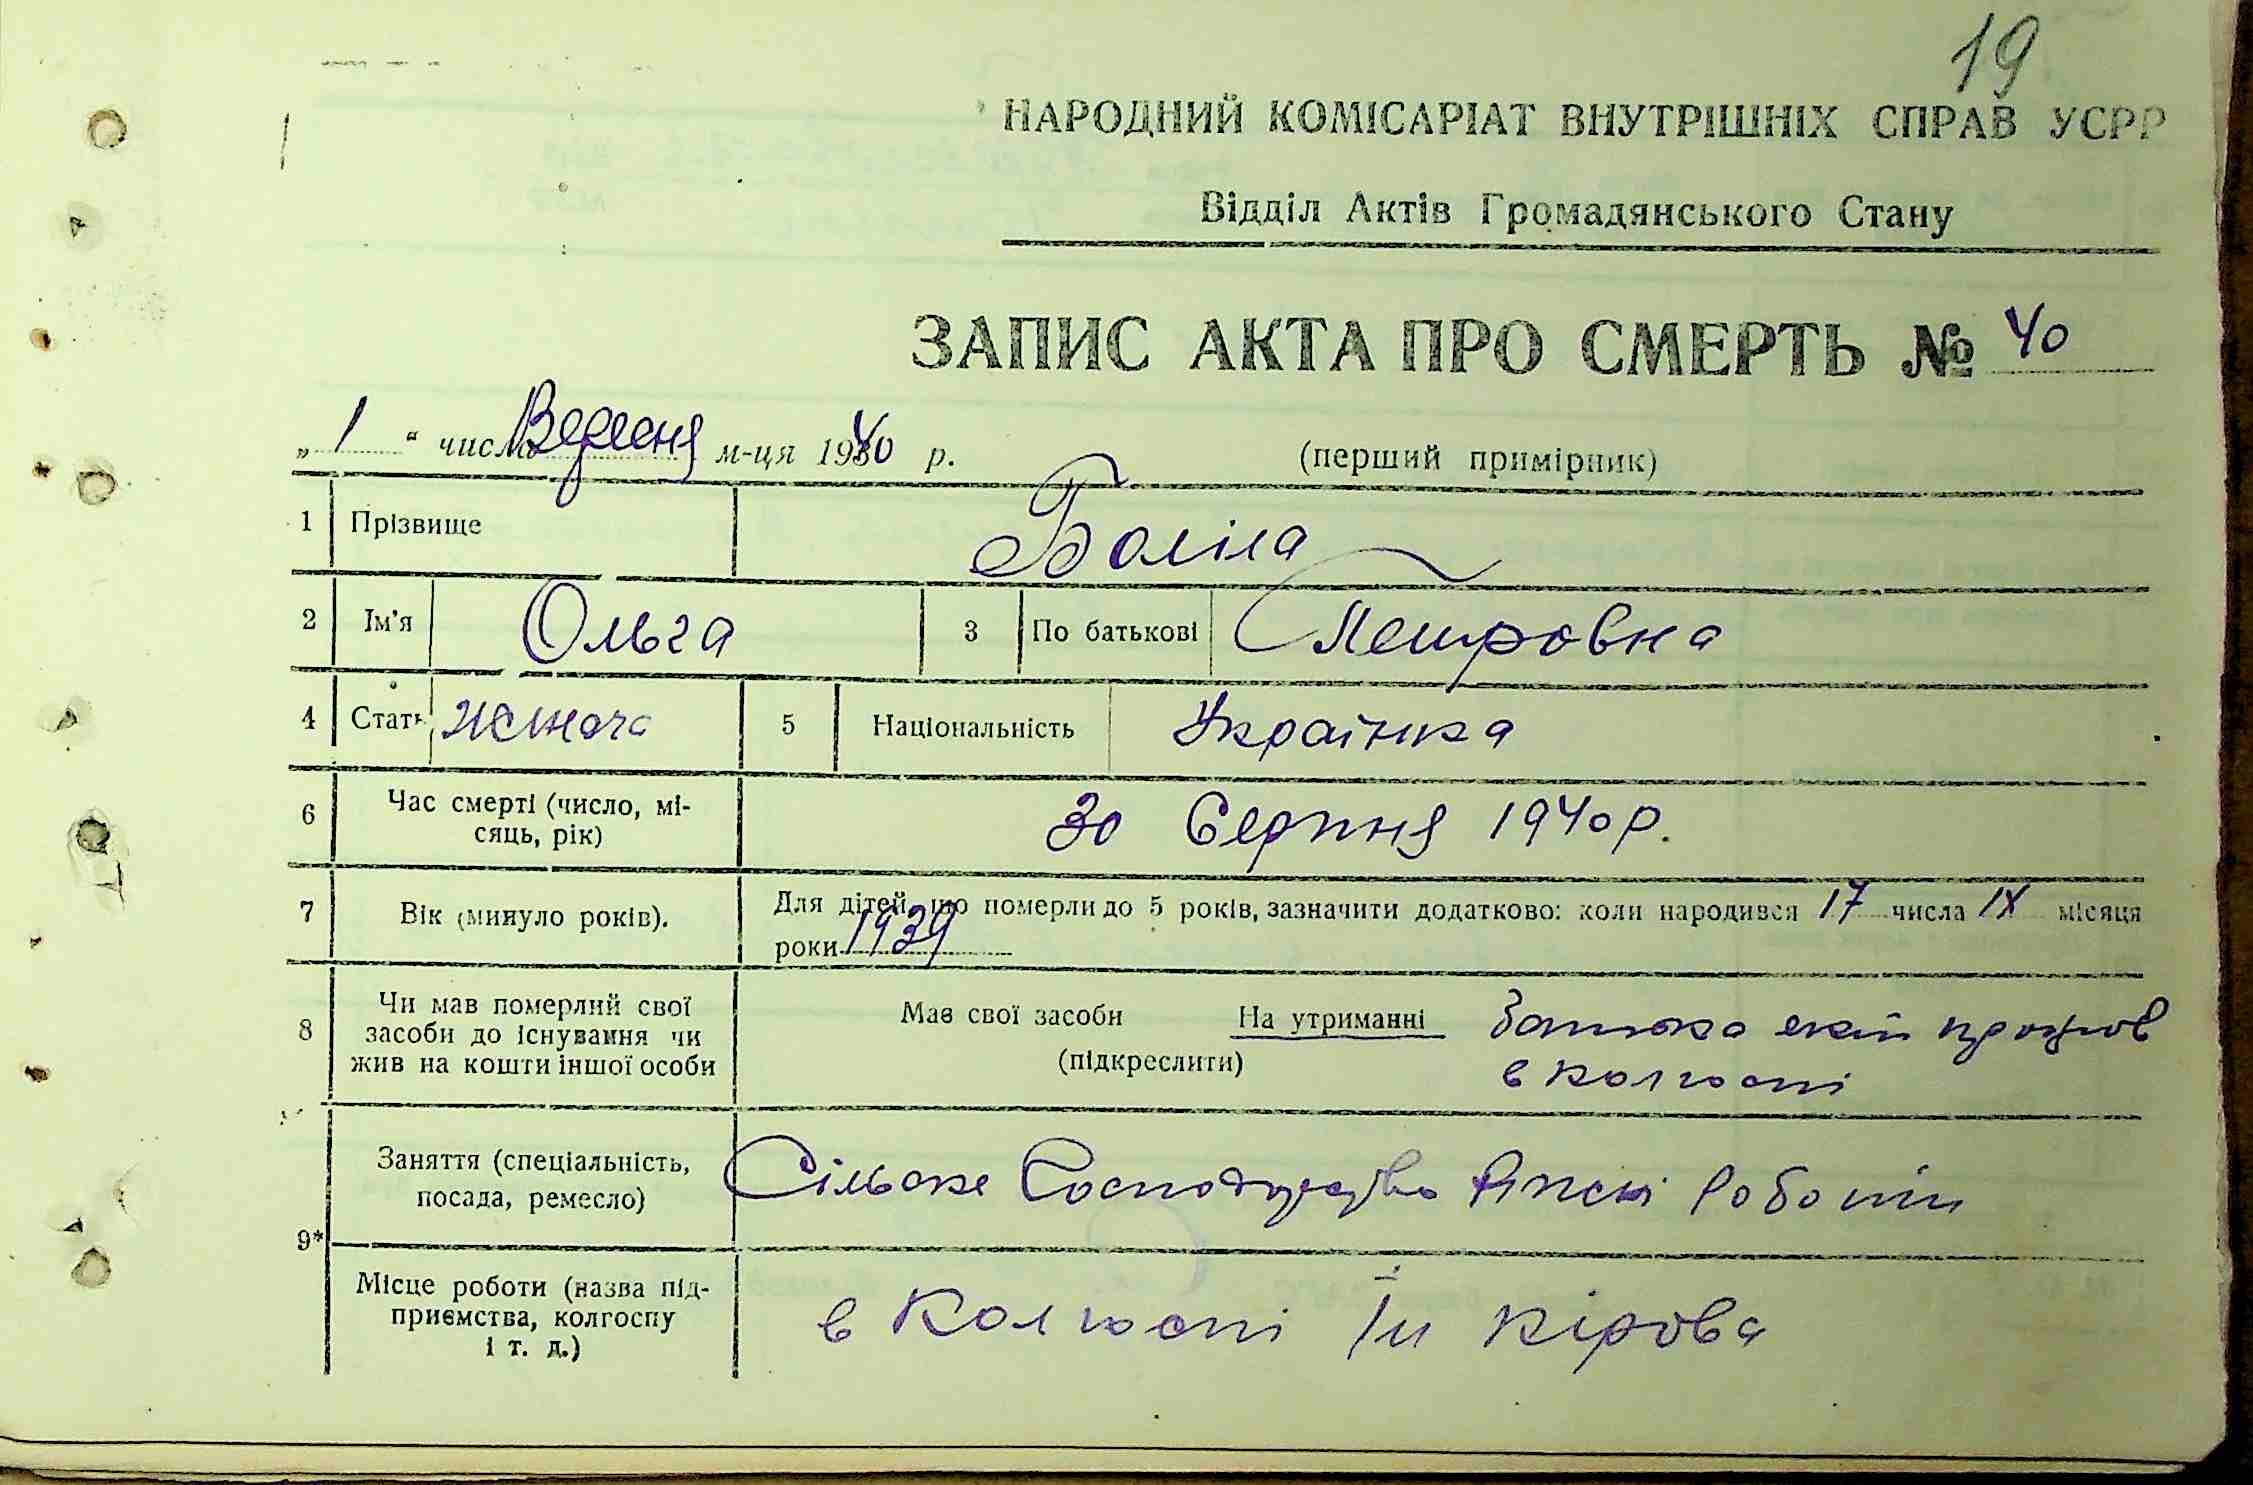 19
НАРОДНИЙ КОМІСАРІАТ ВНУТРІШНІХ СПРАВ УСРР
Відділ Актів Громадянського Стану
ЗАПИС АКТА ПРО СМЕРТЬ № 40
„ 1 “ числа Вересня м-ця 1940 р. (перший примірник)
1 Прізвище Боліла
2 Ім'я Ольга 3 По батькові Петровна
4 Стать жіноча 5 Національність Українка
6 Час смерті (число, мі-
сяць, рік) 30 Серпня 1940 р.
7 Вік (минуло років). Для дітей, що померли до 5 років, зазначити додатково: коли народився 17 числа ІХ місяця
роки 1939
8 Чи мав померлий свої
засоби до існування чи
жив на кошти іншої особи
Мав свої засоби На утриманні батька
(підкреслити) в колгоспі
9* Заняття (спеціальність,
посада, ремесло) Сільске Господарство роботи
Місце роботи (назва під-
приємства, колгоспу
і т. д.) в Колгоспі Ім Кірова